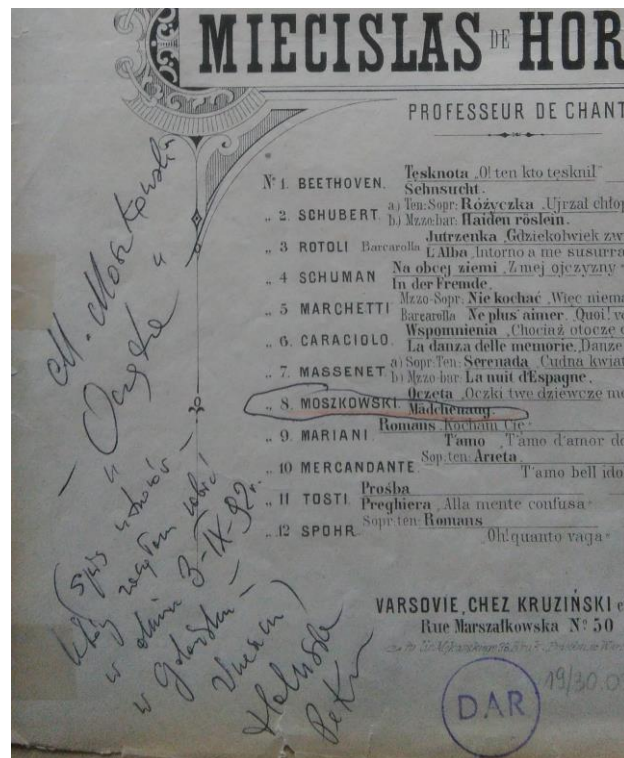 MIECISLAS DE HOR
PROFESSEUR DE CHANT
Nº 1. BEETHOVEN. Tęsknota „O! ten kto tęsknił"
Sehnsucht.
„ 2. SCHUBERT. a) Ten: Sopr: Różyczka „Ujrzał chłop
b) Mzzo: bar: Haiden röslein.
„ 3 ROTOLI Barcarolla Jutrzenka „Gdziekolwiek zw
L'Alba „Intorno a me susurra
„ 4 SCHUMAN Na obcej ziemi „Z mej ojczyzny
In der Fremde.
„ 5 MARCHETTI Mzzo-Sopr: Nie kochać „Więc niema
Barcarolla Ne plus aimer. „Quoi! v
„ 6. CARACIOLO. Wspomnienia „Chociaż otoczę
La danza delle memorie „Danze
„ 7. MASSENET. a) Sopr: Ten: Serenada „Cudna kwiat
b) Mzzo bar La nuit d'Espagne.
„ 8. MOSZKOWSKI. Oczęta „Oczki twe dziewczę me
Mädchenaug.
„ 9. MARIANI. Romans „Kocham Cię"
T'amo „T'amo d'amor
„ 10 MERCANDANTE. Sop: ten: Arieta.
T'amo bell ido
„ 11 TOSTI. Prośba
Preghiera „Alla mente confusa"
„ 12 SPOHR Sopr: ten: Romans
„Oh! quanto vaga"
VARSOVIE, CHEZ KRUZIŃSKI
Rue Marszałkowska Nº 50
DAR
19/30.0
M. Moszkowski
„Oczęta"
(Spis utworów
który zacząłem robić
w dniu 3-IX-92r.
w